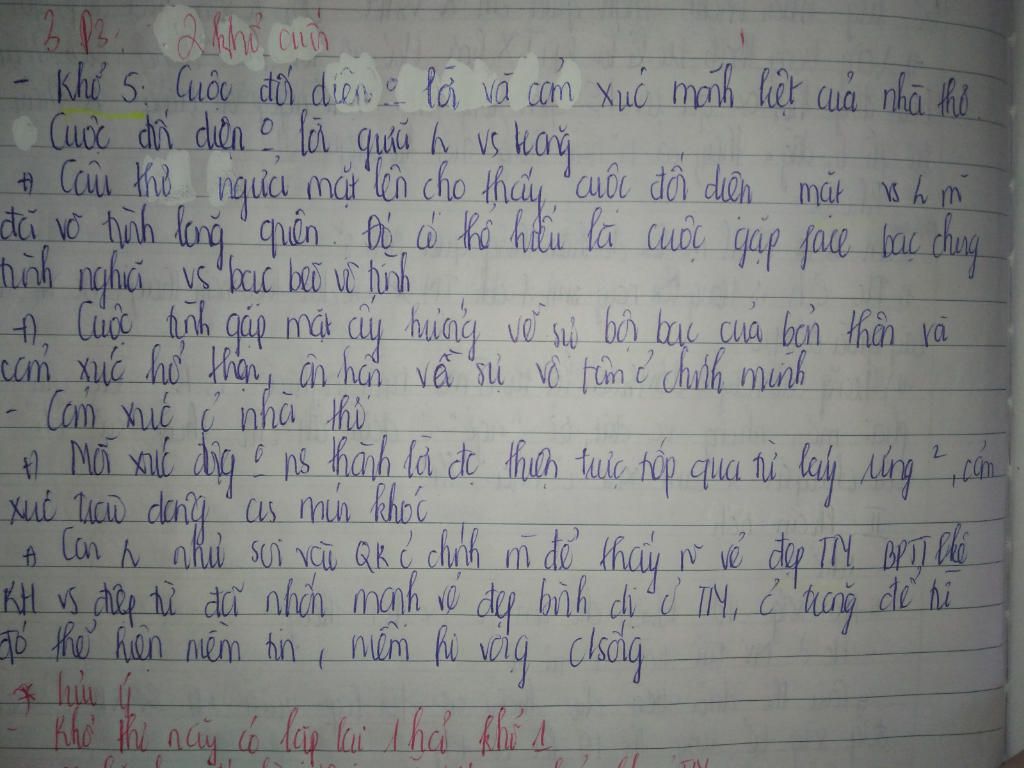 3 P3: 2 khổ cuối
- Khổ 5: Cuộc đối diện = lời và cảm xúc mãnh liệt của nhà thơ
Cuộc đối diện = lời giữa h vs trăng
+) Câu thơ ngửa mặt lên cho thấy cuộc đối diện mặt vs h m
đã vô tình lãng quên. Đó có thể hiểu là cuộc gặp face bạc chung
tình nghĩa vs bạc bẽo vô tình
+) Cuộc tình gặp mặt ấy tượng về sự bội bạc của bản thân và
cảm xúc hổ thẹn, ân hận về sự vô tâm ở chính mình
- Cảm xúc ở nhà thơ
+) Mỗi xúc động ns thành lời đc thực tiếp qua từ láy rưng ², cảm
xúc trào dâng as mún khóc
+) Con h như soi vào QK ở chính m để thấy vẻ đẹp TN. BPTT
KH vs điệp từ đã nhấn mạnh vẻ đẹp bình dị ở TN, ở trăng để từ
đó thể hiện niềm tin, niềm hi vọng c/sống
* Lưu ý
- Khổ thơ này có lặp lại 1 h/ả khổ 1